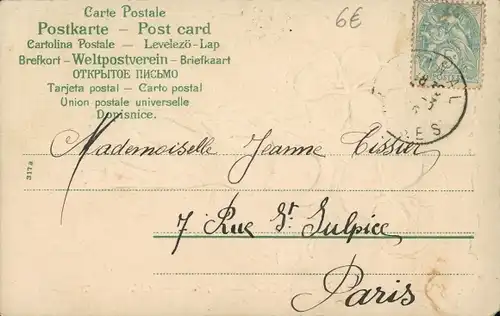 Carte Postale
Postkarte — Post card
Cartolina Postale — Levelező-Lap
Brefkort - Weltpostverein - Briefkaart
ОТКРЫТОЕ ПИСЬМО
Tarjeta postal — Carto postal
Union postale universelle
Dopisnice.
6€
317a
Mademoiselle Jeanne Tissier
7 Rue St. Sulpice
Paris